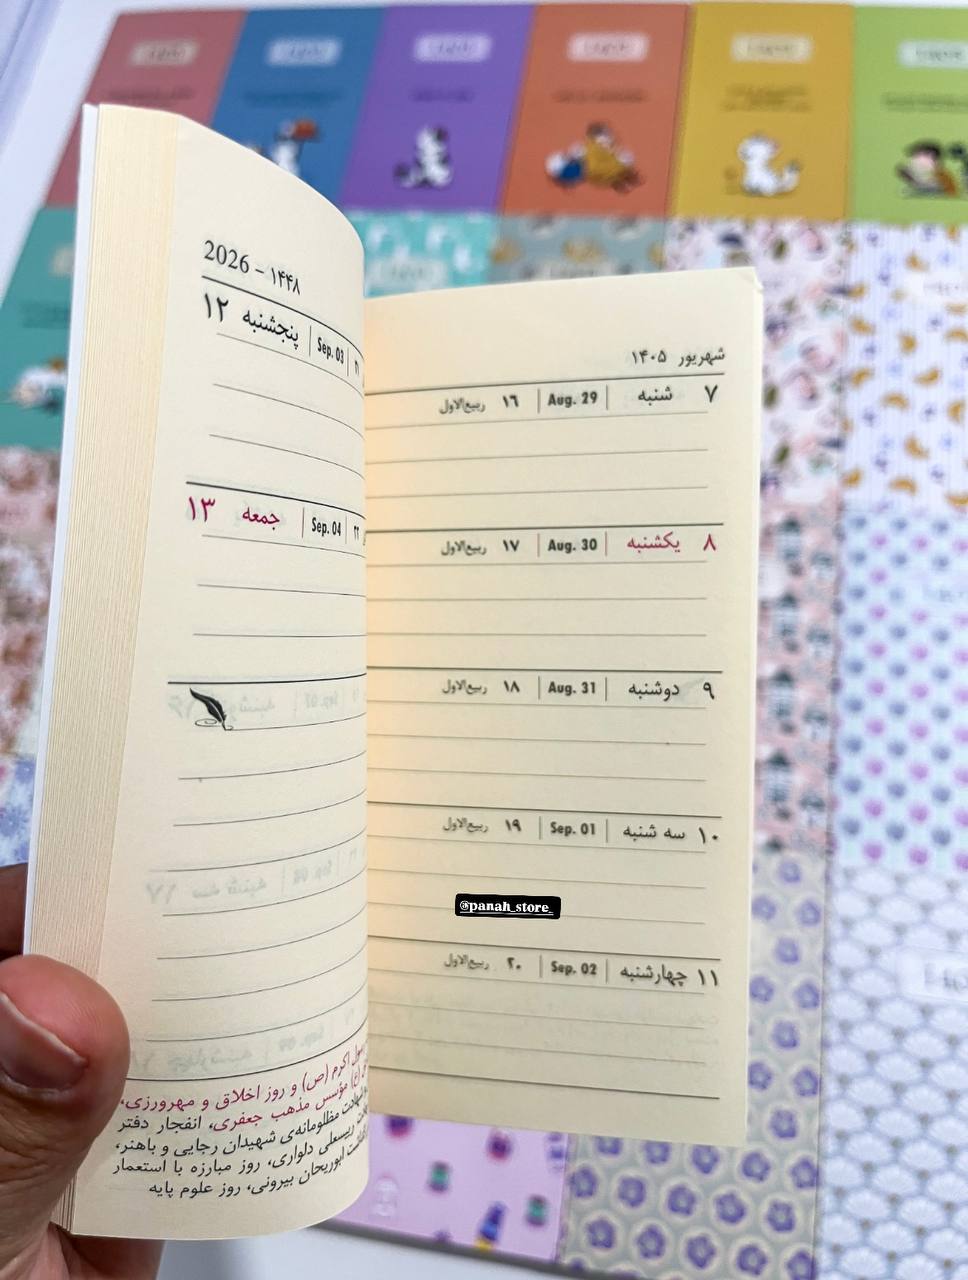 شهریور ۱۴۰۵
۷ شنبه | Aug. 29 | ۱۶ ربیع‌الاول
۸ یکشنبه | Aug. 30 | ۱۷ ربیع‌الاول
۹ دوشنبه | Aug. 31 | ۱۸ ربیع‌الاول
۱۰ سه شنبه | Sep. 01 | ۱۹ ربیع‌الاول
۱۱ چهارشنبه | Sep. 02 | ۲۰ ربیع‌الاول
@panah_store_
2026 – ۱۴۴۸
۱۲ پنجشنبه | Sep. 03 | ۲۱
۱۳ جمعه | Sep. 04 | ۲۲
اکرم (ص) و روز اخلاق و مهرورزی،
مؤسس مذهب جعفری، انفجار دفتر
شهادت مظلومانه‌ی شهیدان رجایی و باهنر،
رییسعلی دلواری، روز مبارزه با استعمار
ابوریحان بیرونی، روز علوم پایه